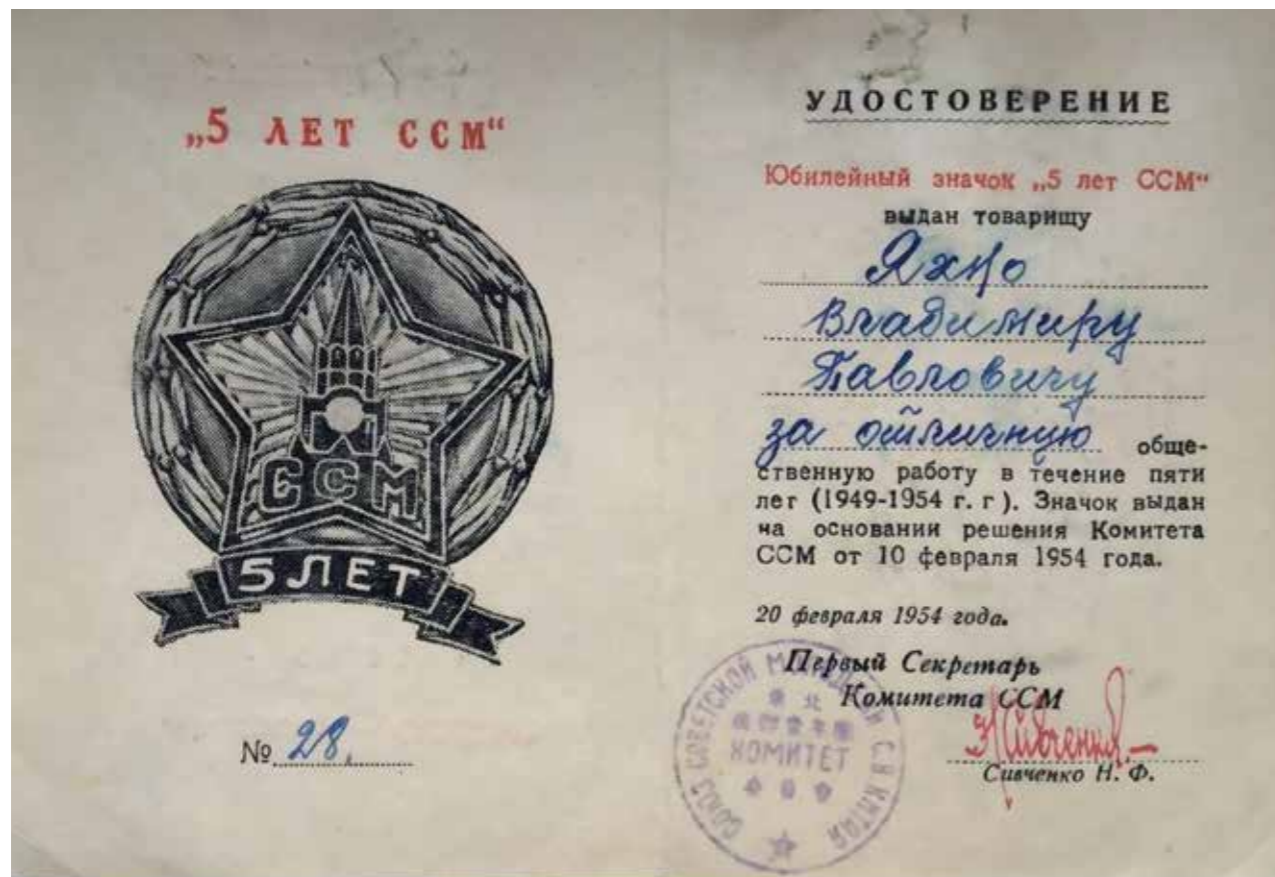 „5 ЛЕТ ССМ“
ССМ
5 ЛЕТ
№ 28.
УДОСТОВЕРЕНИЕ
Юбилейный значок „5 лет ССМ“
выдан товарищу
Яхно
Владимиру
Павловичу
за отличную обще-
ственную работу в течение пяти
лет (1949-1954 г. г). Значок выдан
на основании решения Комитета
ССМ от 10 февраля 1954 года.
20 февраля 1954 года.
Первый Секретарь
Комитета ССМ
Сивченко Н. Ф.
СОЮЗ СОВЕТСКОЙ МОЛОДЕЖИ С.В. КИТАЯ
東北
КОМИТЕТ